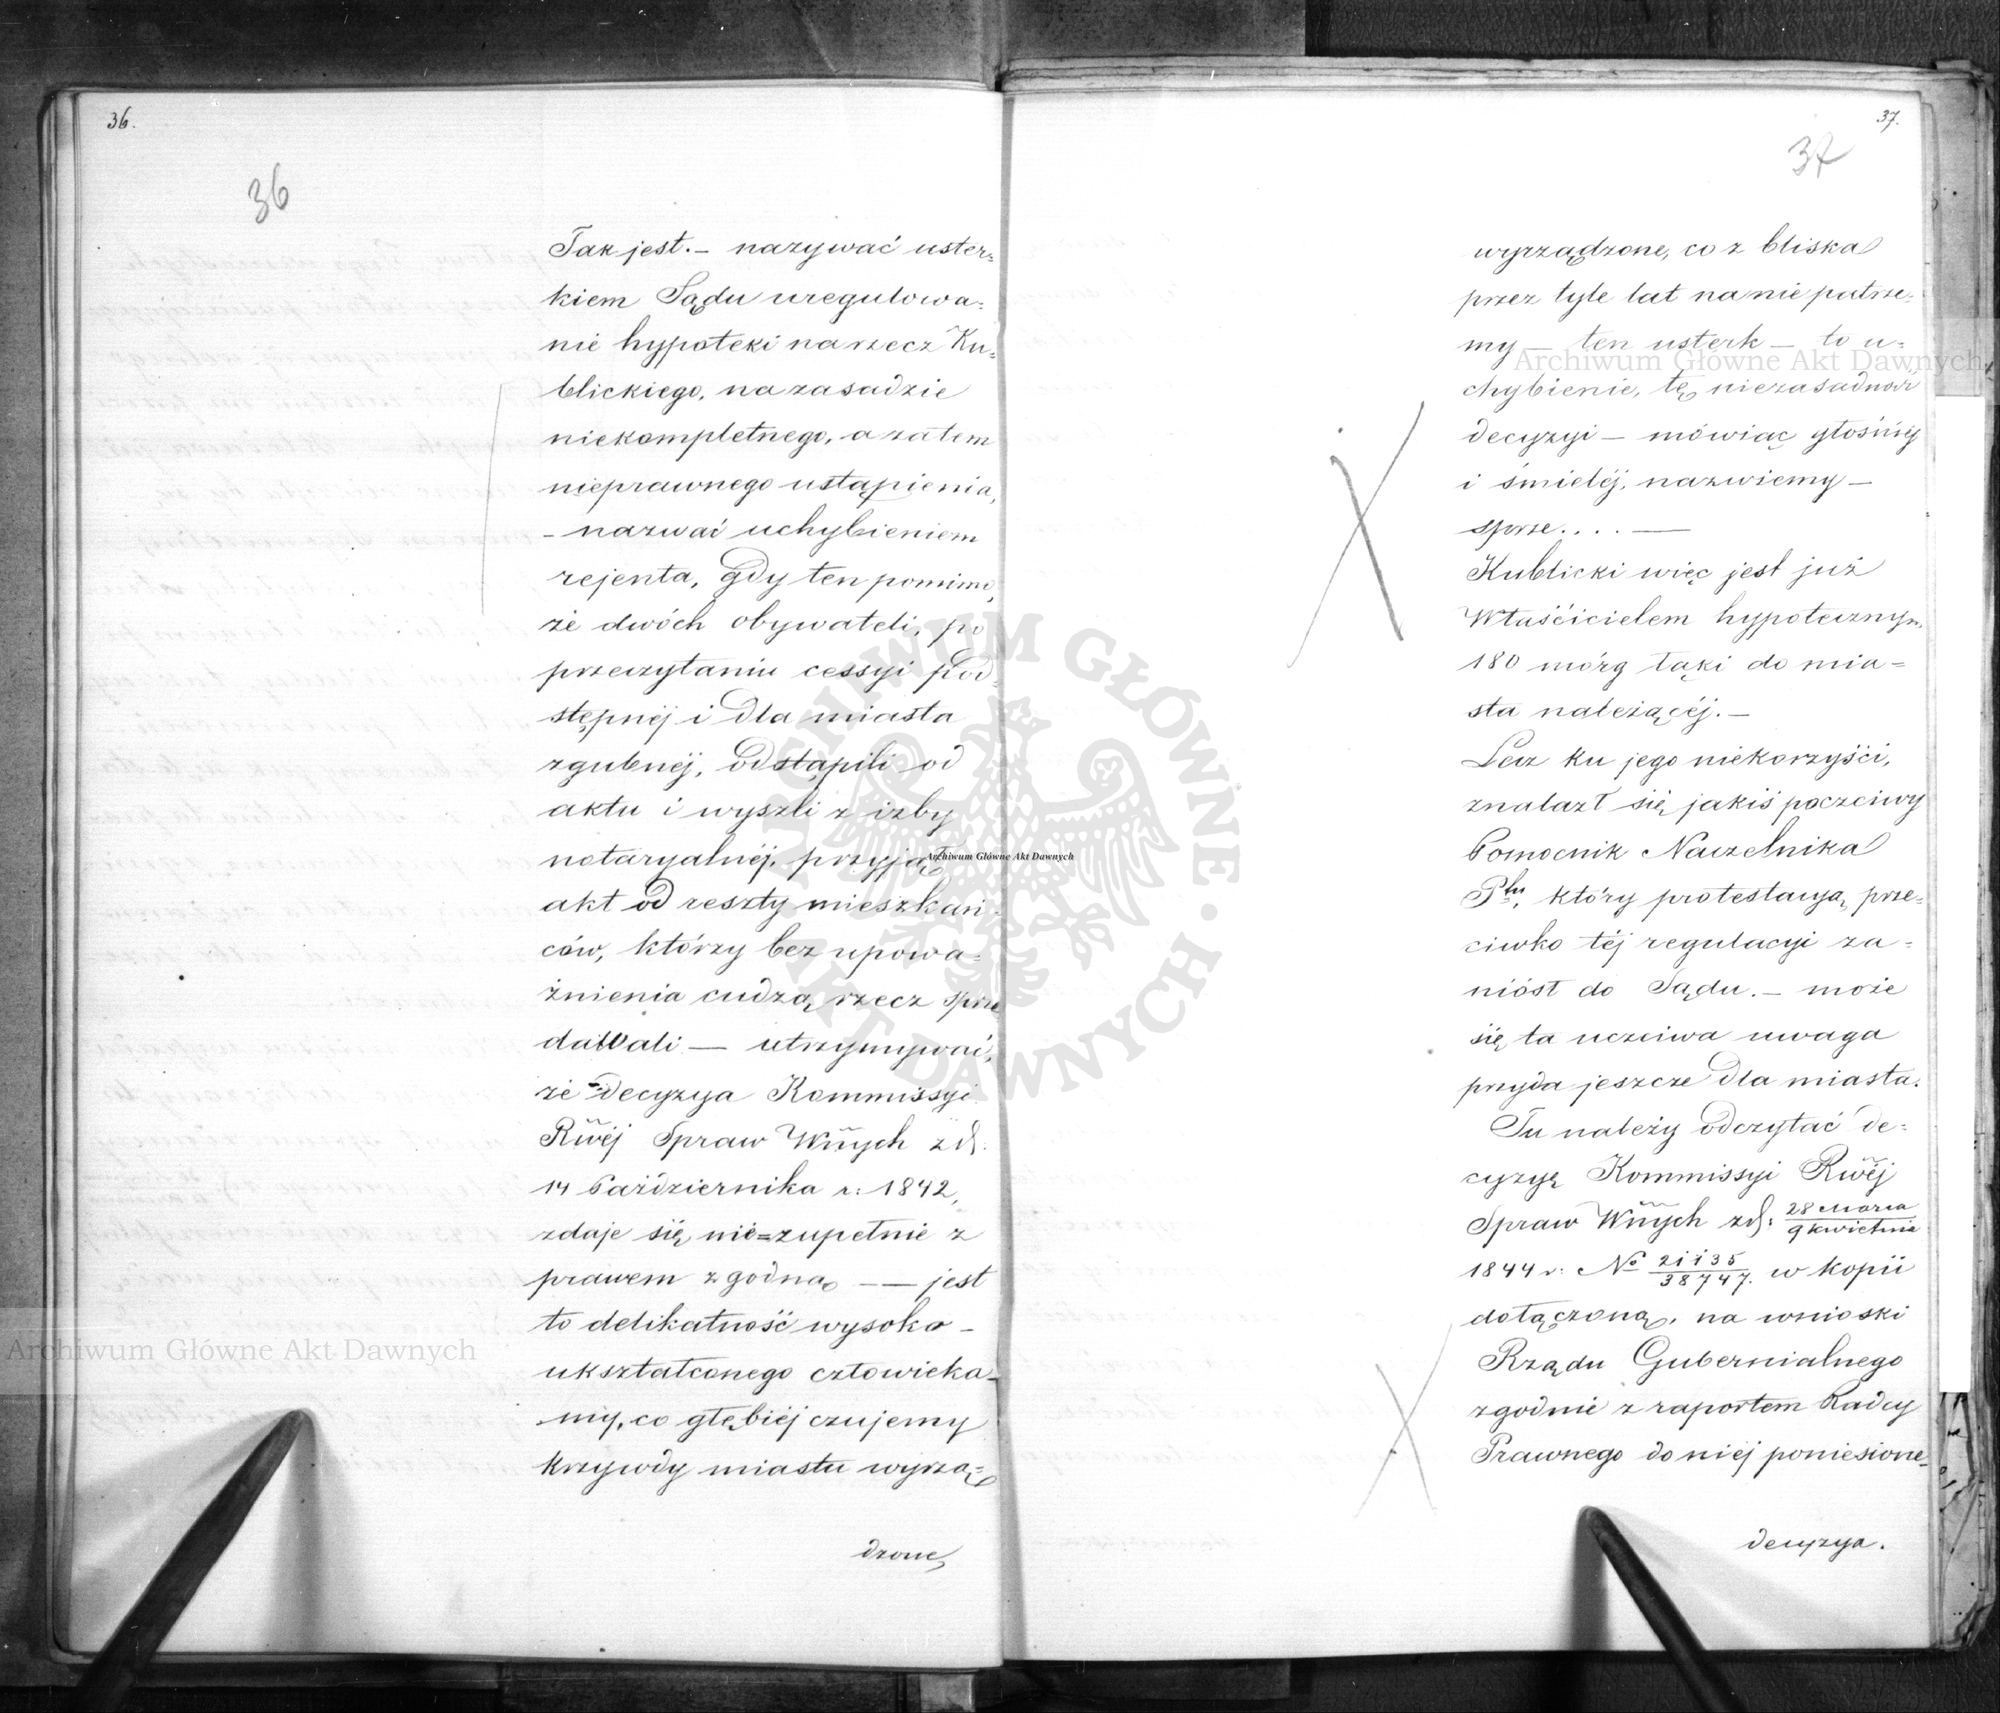 36.
36
Tak jest. — nazywać uster=
kiem Sądu uregulowa=
nie hypoteki na rzecz Ku=
blickiego, na zasadzie
niekompletnego, a zatem
nieprawnego ustąpienia,
– nazwać uchybieniem
rejenta, gdy ten pomimo,
że dwóch obywateli, po
przeczytaniu cessyi pod=
stępnéj i dla miasta
zgubnéj, odstąpili od
aktu i wyszli z izby
notaryalnéj, przyjął
akt od reszty mieszkań=
ców, którzy bez upowa=
żnienia cudzą rzecz sprze
dawali — utrzymywać,
że decyzya Kommissyi
Rwéj Spraw Wnych z d.
14 Października r: 1842,
zdaje się nie=zupełnie z
prawem zgodną — — jest
to delikatność wysoko –
ukształconego człowieka –
my, co głębiéj czujemy
krzywdy miastu wyrzą=
dzone,
37.
37
wyrządzone, co z bliska
przez tyle lat na nie patrze=
my — ten usterk — to u=
chybienie, tę niezasadność
decyzyi — mówiąc głośniéj
i śmieléj, nazwiemy —
sprze.... —
Kublicki więc jest już
Właścicielem hypotecznym
180 mórg łąki do mia=
sta należącéj. —
Lecz ku jego niekorzyści,
znalazł się jakiś poczciwy
Pomocnik Naczelnika
Ptu, który protestacyą prze=
ciwko téj regulacyi za=
niósł do Sądu. — może
się ta uczciwa uwaga
przyda jeszcze dla miasta.
Tu należy odczytać de=
cyzyę Kommissyi Rwéj
Spraw Wnych z d: 28 Marca / 9 Kwietnia
1844 r: No 21135 / 38747. w kopii
dołączoną, na wnioski
Rządu Gubernialnego
zgodnie z raportem Radcy
Prawnego do niéj poniesione –
decyzya.
Archiwum Główne Akt Dawnych
Archiwum Główne Akt Dawnych
Archiwum Główne Akt Dawnych
ARCHIWUM GŁÓWNE AKT DAWNYCH